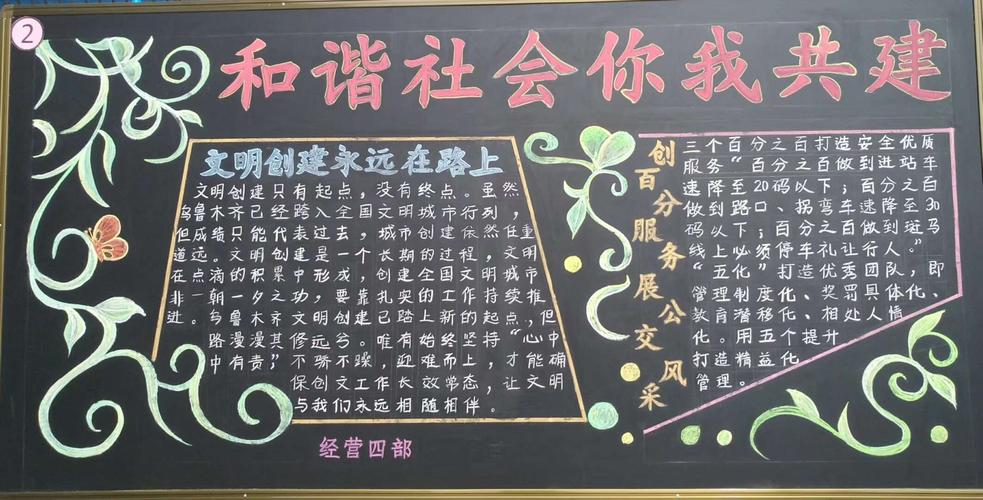 2
和谐社会你我共建
文明创建永远在路上
文明创建只有起点，没有终点。虽然
乌鲁木齐已经跨入全国文明城市行列，
但成绩只能代表过去，城市创建依然任重
道远。文明创建是一个长期的过程，文明
在点滴的积累中形成，创建全国文明城市
非一朝一夕之功，要靠扎实的工作持续推
进。乌鲁木齐文明创建已踏上新的起点，但
路漫漫其修远兮。唯有始终坚持“心
中有责”，不骄不躁，迎难而上，才能确
保创文工作长效常态，让文明
与我们永远相随相伴。
经营四部
创百分服务展公交风采
三个百分之百打造安全优质
服务“百分之百做到进站车
速降至20码以下；百分之百
做到路口、拐弯车速降至30
码以下；百分之百做到斑马
线上必须停车礼让行人。”
“五化”打造优秀团队，即
管理制度化、奖罚具体化、
教育潜移化、相处人情
化。用五个提升
打造精益化
管理。